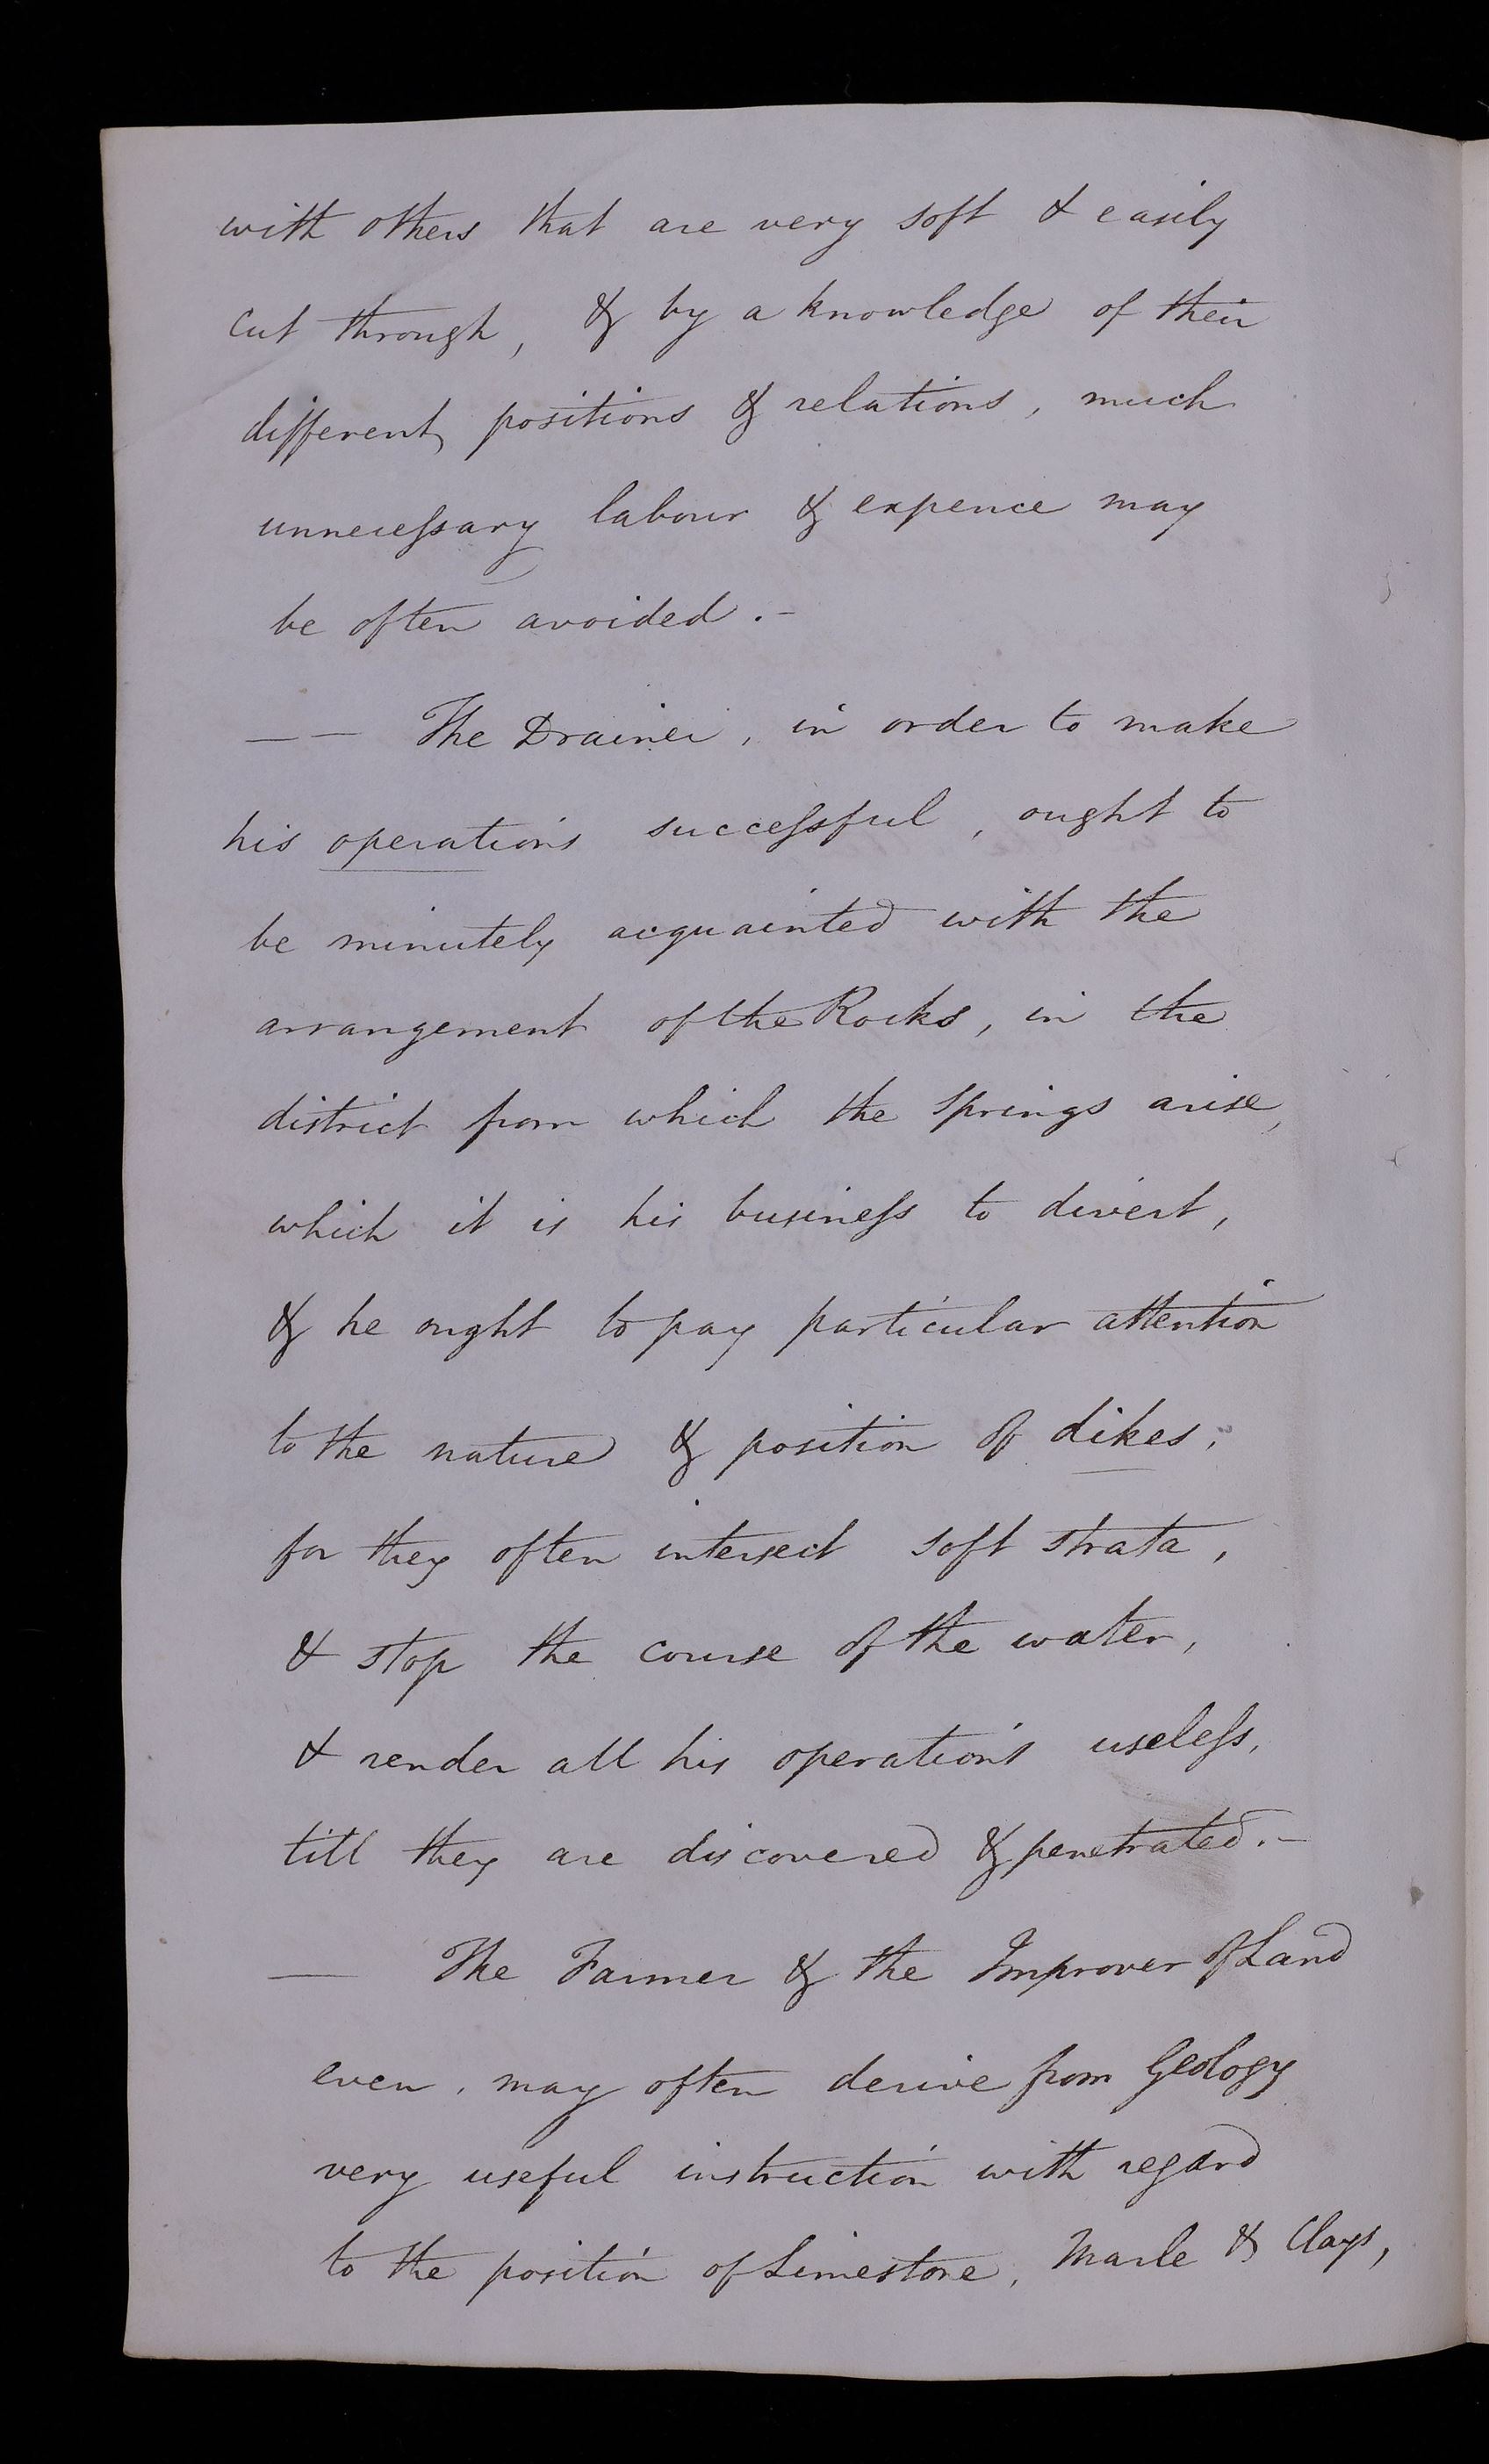 with others that are very soft & easily
cut through, & by a knowledge of their
different positions & relations, much
unnecessary labour & expence may
be often avoided. -
— — The Drainer, in order to make
his operations successful, ought to
be minutely acquainted with the
arrangement of the Rocks, in the
district from which the springs arise,
which it is his business to divert,
& he ought to pay particular attention
to the nature & position of dikes;
for they often intersect soft strata,
& stop the course of the water,
& render all his operations useless,
till they are discovered & penetrated. -
— The Farmer & the Improver of Land
even, may often derive from Geology
very useful instruction with regard
to the position of Limestone, Marle & Clays,